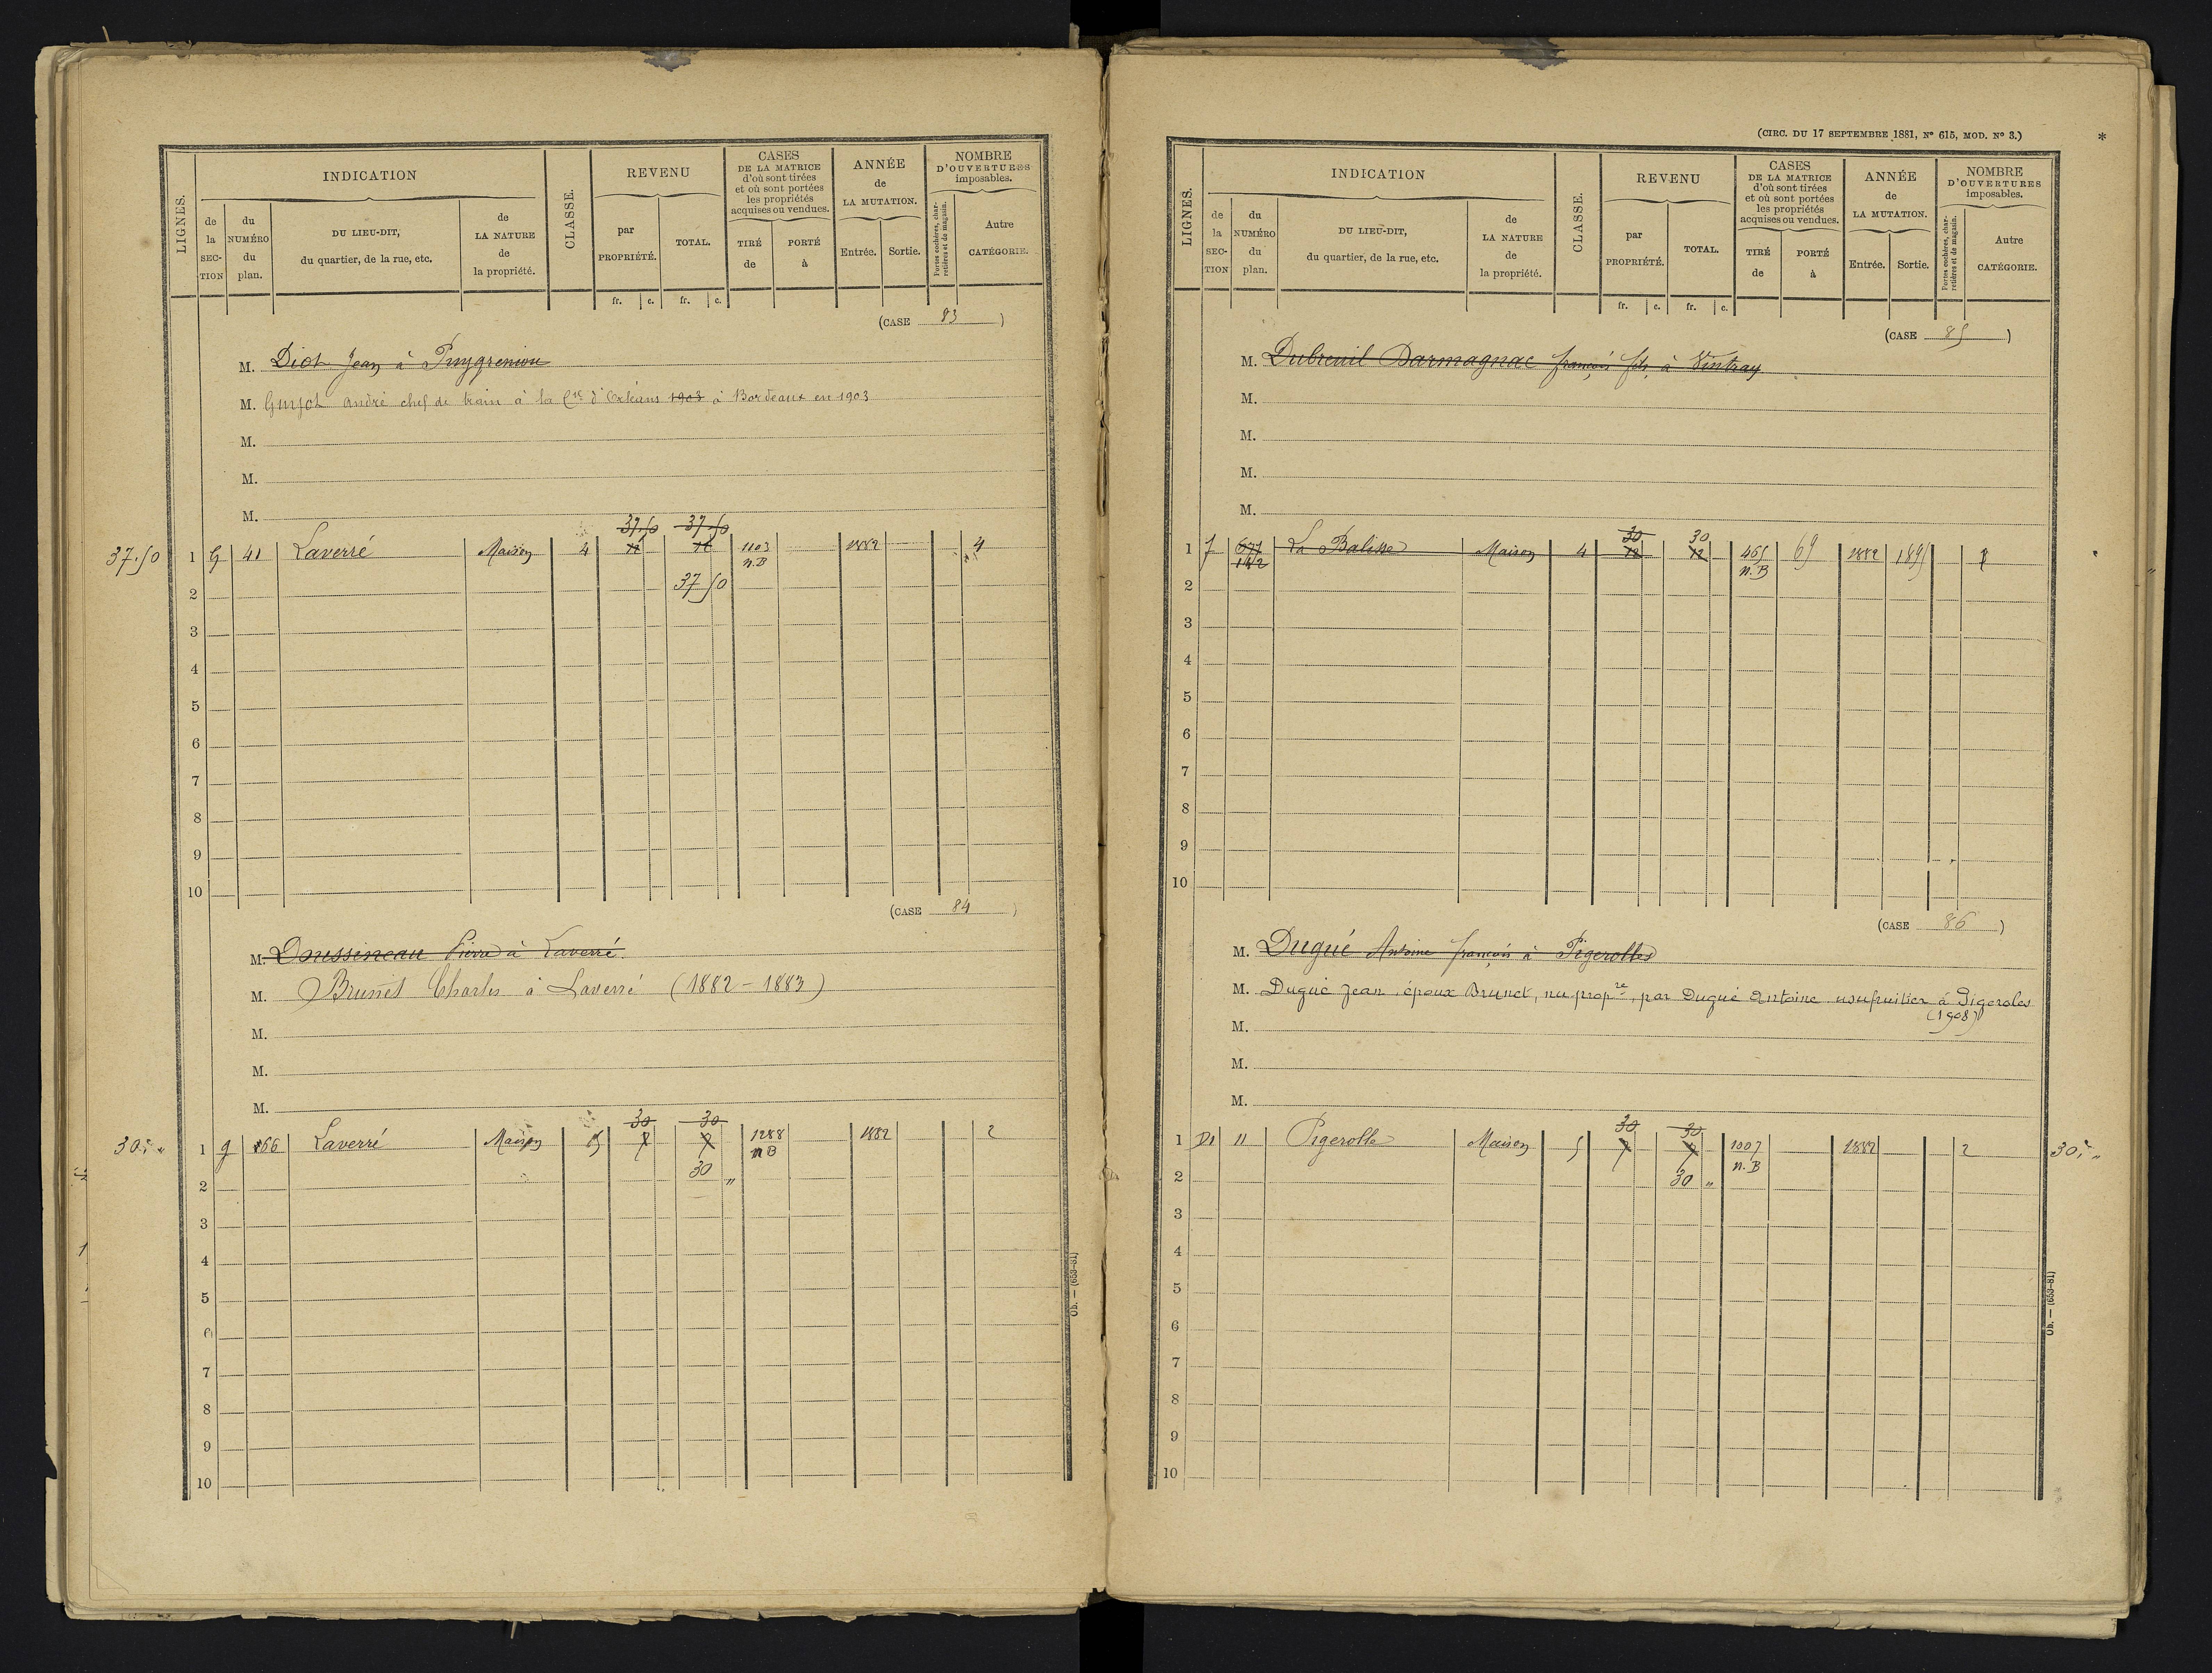 LIGNES.
INDICATION
de la SEC-TION
du NUMÉRO du plan.
DU LIEU-DIT, du quartier, de la rue, etc.
de LA NATURE de la propriété.
CLASSE.
REVENU
par PROPRIÉTÉ.
TOTAL.
fr. c. fr. c.
CASES DE LA MATRICE d'où sont tirées et où sont portées les propriétés acquises ou vendues.
TIRÉ de
PORTÉ à
ANNÉE de LA MUTATION.
Entrée.
Sortie.
NOMBRE D'OUVERTURES imposables.
Portes cochères, charretières et de magasin.
Autre CATÉGORIE.
(CASE 83)
M. Diot Jean à Puygreniou
M. Guyot andré chef de train à la Cie d'Orléans 1903 à Bordeaux en 1903
M.
M.
M.
37.50 37.50
37.50 1 G 41 Laverré Maison 4 1103 n.B 1882 4
2 37 50
3
4
5
6
7
8
9
10
(CASE 84)
M. Doussineau Pierre à Laverré
M. Brunet Charles à Laverré (1882-1883)
M.
M.
M.
30 30
30 " 1 g 166 Laverré Maison 5 7 7 1288 n B 1882 2
30 "
2
3
4
5
6
7
8
9
10
Ob. — (653-81)
(CIRC. DU 17 SEPTEMBRE 1881, N° 615, MOD. N° 3.)
*
LIGNES.
INDICATION
de la SEC-TION
du NUMÉRO du plan.
DU LIEU-DIT, du quartier, de la rue, etc.
de LA NATURE de la propriété.
CLASSE.
REVENU
par PROPRIÉTÉ.
TOTAL.
fr. c. fr. c.
CASES DE LA MATRICE d'où sont tirées et où sont portées les propriétés acquises ou vendues.
TIRÉ de
PORTÉ à
ANNÉE de LA MUTATION.
Entrée.
Sortie.
NOMBRE D'OUVERTURES imposables.
Portes cochères, charretières et de magasin.
Autre CATÉGORIE.
(CASE 85)
M. Dubreuil Darmagnac françois fils à Vintray
M.
M.
M.
M.
30 30
1 La Balisse Maison 4 12 12 465 n.B 69 1882 1895
2
3
4
5
6
7
8
9
10
(CASE 86)
M. Dugué Antoine françois à Pigerolles
M. Dugué Jean époux Brunet, nu propre, par Dugué Antoine usufruitier à Pigeroles
(1908)
M.
M.
M.
30 30
1 D1 11 Pigerolle Maison 5 7 7 1007 n.B 1882 2 30 "
2 30 "
3
4
5
6
7
8
9
10
Ob. — (653-81)